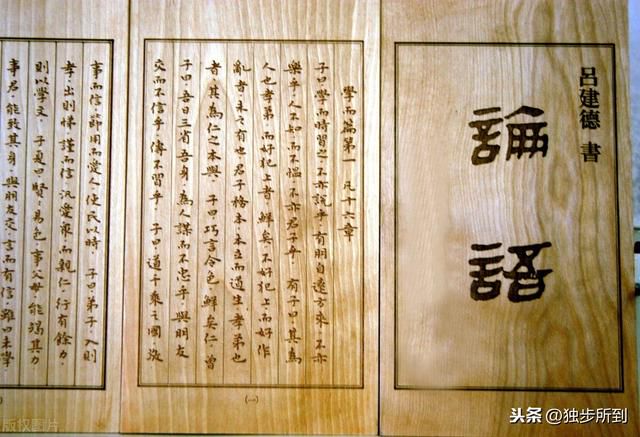 呂建德 書
論語
學而篇第一 凡十六章
子曰學而時習之不亦說乎有朋自遠方來不亦
樂乎人不知而不慍不亦君子乎 有子曰其為
人也孝弟而好犯上者鮮矣不好犯上而好作
亂者未之有也君子務本本立而道生孝弟也
者其為仁之本與 子曰巧言令色鮮矣仁 曾
子曰吾日三省吾身為人謀而不忠乎與朋友
交而不信乎傳不習乎 子曰道千乘之國敬
(一)
事而信節用而愛人使民以時 子曰弟子入則
孝出則悌謹而信汎愛眾而親仁行有餘力
則以學文 子夏曰賢〻易色事父母能竭其力
事君能致其身與朋友交言而有信雖曰未學
版权图片
头条 @独步所到